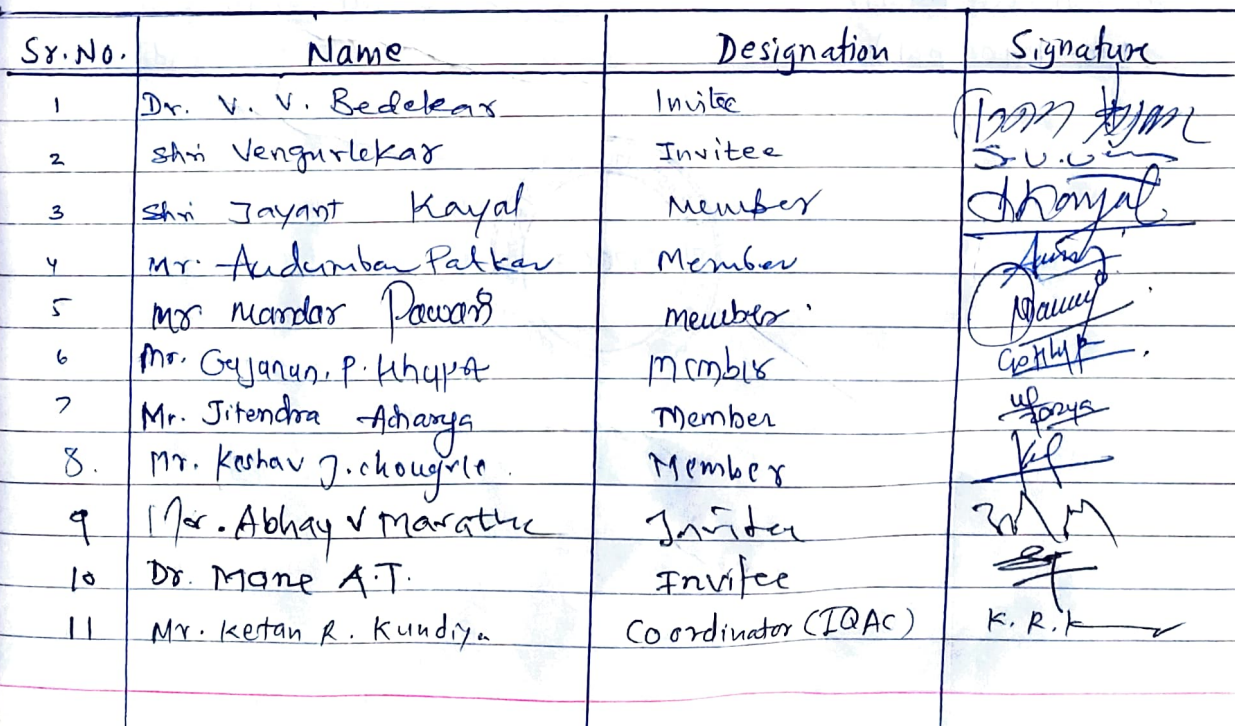 Sr.No. Name Designation Signature
1 Dr. V. V. Bedekar Invitee
2 Shri Vengurlekar Invitee
3 Shri Jayant Kayal Member
4 Mr. Audumbar Patkar Member
5 Mr Mandar Pawar Member
6 Mr. Gajanan. P. Member
7 Mr. Jitendra Acharya Member
8. Mr. Keshav J. chougule. Member
9 Mr. Abhay V Marathe Invitee
10 Dr. Mane A.T. Invitee
11 Mr. Ketan R. Kundiya Coordinator (IQAC) K. R. K